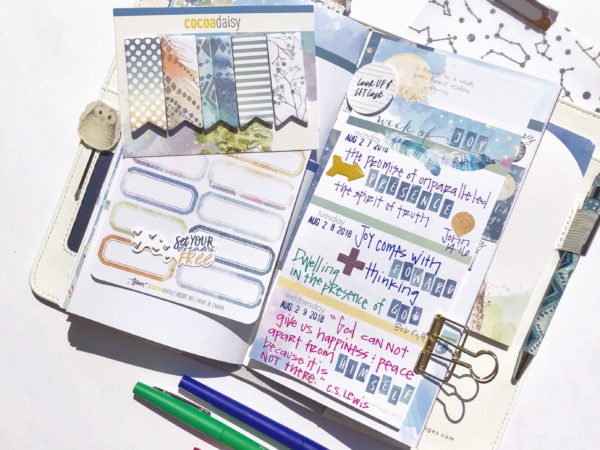 cocoadaisy
LOOK UP &
GET lost
week of JOY
monday
AUG 27 2018
the promise of unparalleled
PRESENCE
the spirit of truth
John
14:16
tuesday
AUG 28 2018
Joy comes with
FORWARD
thinking
Dwelling
in the presence of GOD
wednesday
AUG 29 2018
"God can not
give us happiness & peace
apart from HIMSELF
because it is
NOT there." C.S. Lewis
Set YOUR
dreams
FREE
cocoadaisy | POCKET KIT | MADE IN CANADA
ages.com